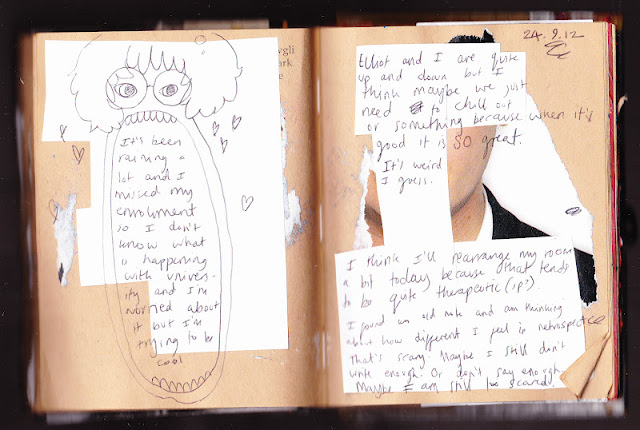 vgli
rk
e
It's been
raining a
lot and I
missed my
enrolment
so I don't
know what
is happening
with univers-
ity and I'm
worried about
it but I'm
trying to be
cool
24.9.12
Elliot and I are quite
up and down but I
think maybe we just
need to chill out
or something because when it's
good it is SO great.
It's weird
I guess.
I think I'll rearrange my room
a bit today because that tends
to be quite therapeutic (sp?)
I found an old note and am thinking
about how different I feel in retrospect
That's scary. Maybe I still don't
write enough. Or don't say enough.
Maybe I am still scared.